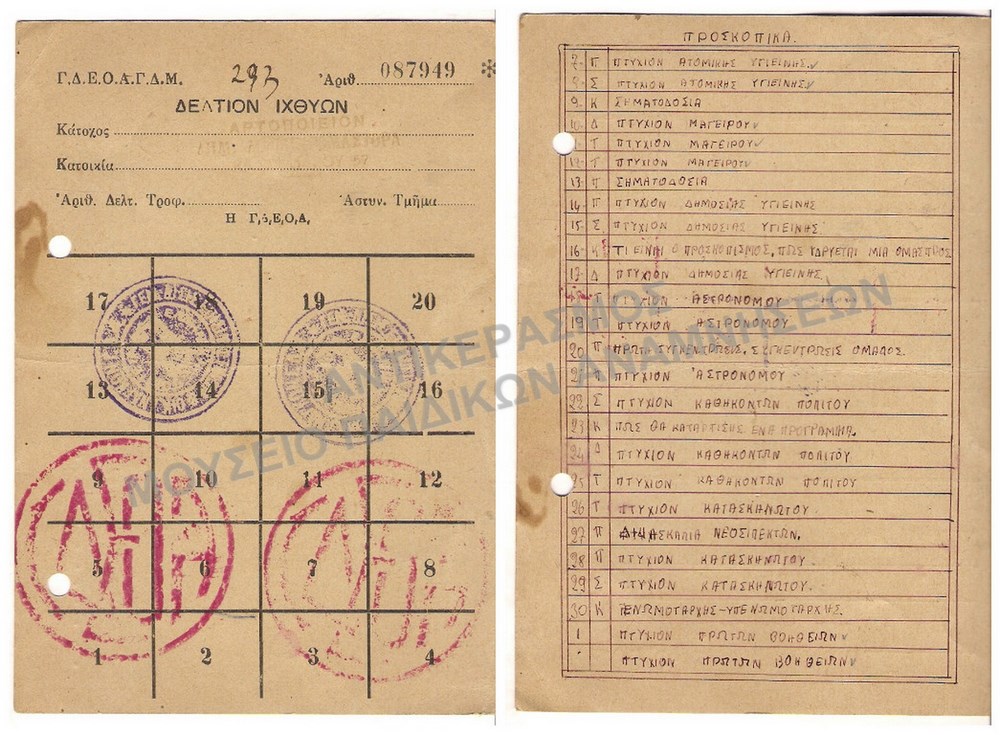 Γ.Δ.Ε.Ο.Α.Γ.Δ.Μ. 293 Ἀριθ. 087949 *
ΔΕΛΤΙΟΝ ΙΧΘΥΩΝ
ΑΡΤΟΠΟΙΕΙΟΝ
Κάτοχος
Κατοικία
Ἀριθ. Δελτ. Τροφ. Ἀστυν. Τμῆμα
Η Γ.Δ.Ε.Ο.Α.
17 18 19 20
13 14 15 16
9 10 11 12
5 6 7 8
1 2 3 4
ΠΡΟΣΚΟΠΙΚΑ.
7 Π ΠΤΥΧΙΟΝ ΑΤΟΜΙΚΗΣ ΥΓΙΕΙΝΗΣ
8 Σ ΠΤΥΧΙΟΝ ΑΤΟΜΙΚΗΣ ΥΓΙΕΙΝΗΣ
9 Κ ΣΗΜΑΤΟΔΟΣΙΑ
10 Δ ΠΤΥΧΙΟΝ ΜΑΓΕΙΡΟΥ
Τ ΠΤΥΧΙΟΝ ΜΑΓΕΙΡΟΥ
12 Τ ΠΤΥΧΙΟΝ ΜΑΓΕΙΡΟΥ
13 Π ΣΗΜΑΤΟΔΟΣΙΑ
14 Π ΠΤΥΧΙΟΝ ΔΗΜΟΣΙΑΣ ΥΓΙΕΙΝΗΣ
15 Σ ΠΤΥΧΙΟΝ ΔΗΜΟΣΙΑΣ ΥΓΙΕΙΝΗΣ
16 Κ ΤΙ ΕΙΝΑΙ Ο ΠΡΟΣΚΟΠΙΣΜΟΣ, ΠΩΣ ΙΔΡΥΕΤΑΙ ΜΙΑ
17 Δ ΠΤΥΧΙΟΝ ΔΗΜΟΣΙΑΣ ΥΓΙΕΙΝΗΣ
ΠΤΥΧΙΟΝ ΑΣΤΡΟΝΟΜΟΥ
19 Τ ΠΤΥΧΙΟΝ ΑΣΤΡΟΝΟΜΟΥ
20 Π ΣΥΓΚΕΝΤΡΩΣΕΙΣ ΟΜΑΔΟΣ
21 Π ΠΤΥΧΙΟΝ ἈΣΤΡΟΝΟΜΟΥ
22 Σ ΠΤΥΧΙΟΝ ΚΑΘΗΚΟΝΤΩΝ ΠΟΛΙΤΟΥ
23 Κ ΠΩΣ ΘΑ ΚΑΤΑΡΤΙΣΗΣ ΕΝΑ ΠΡΟΓΡΑΜΜΑ.
24 Δ ΠΤΥΧΙΟΝ ΚΑΘΗΚΟΝΤΩΝ ΠΟΛΙΤΟΥ
25 Τ ΠΤΥΧΙΟΝ ΚΑΘΗΚΟΝΤΩΝ ΠΟΛΙΤΟΥ
26 Τ ΠΤΥΧΙΟΝ ΚΑΤΑΣΚΗΝΩΤΟΥ.
27 Π ΔΙΔΑΣΚΑΛΙΑ ΝΕΟΣΥΛΕΚΤΩΝ.
28 Π ΠΤΥΧΙΟΝ ΚΑΤΑΣΚΗΝΩΤΟΥ.
29 Σ ΠΤΥΧΙΟΝ ΚΑΤΑΣΚΗΝΩΤΟΥ.
30 Κ ΕΝΩΜΟΤΑΡΧΗΣ-ΥΠΕΝΩΜΟΤΑΡΧΗΣ.
1 ΠΤΥΧΙΟΝ ΠΡΩΤΩΝ ΒΟΗΘΕΙΩΝ
ΠΤΥΧΙΟΝ ΠΡΩΤΩΝ ΒΟΗΘΕΙΩΝ
ΑΝΤΙΚΕΡΑΣΜΟΣ
ΜΟΥΣΕΙΟ ΠΑΙΔΙΚΩΝ ΑΝΑΜΝΗΣΕΩΝ